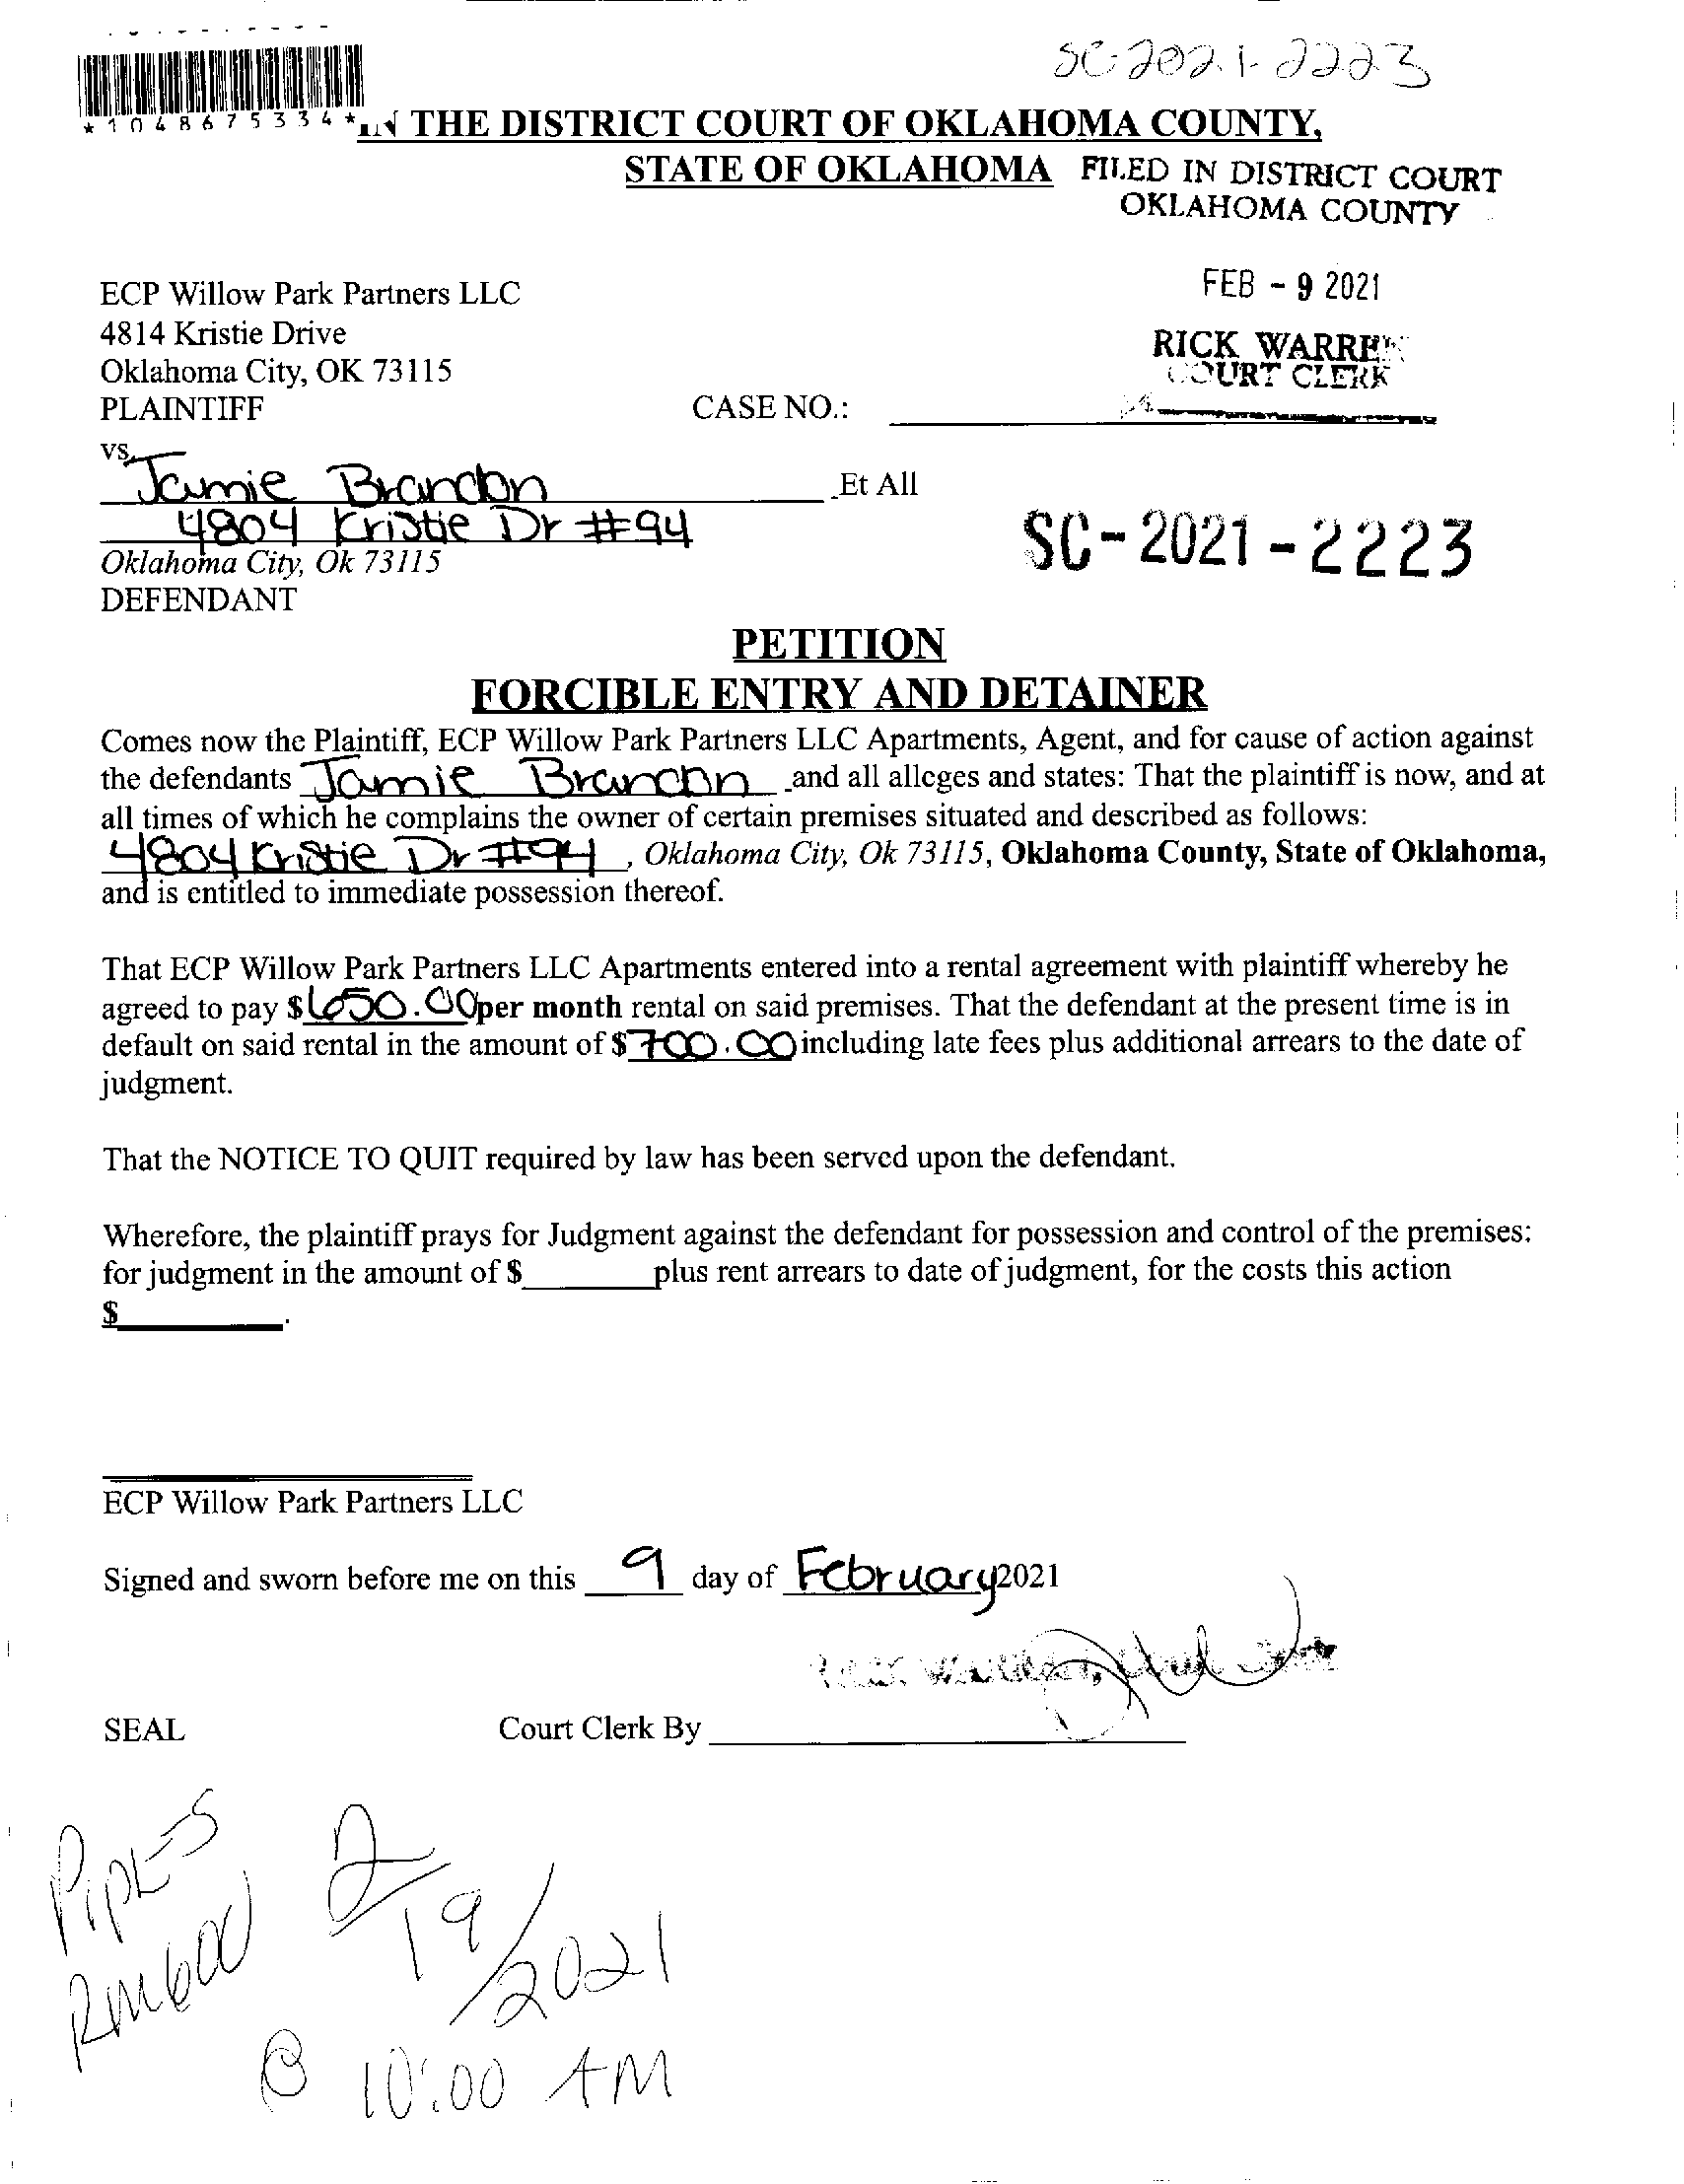 SC-2021-2223
*1048675334*
IN THE DISTRICT COURT OF OKLAHOMA COUNTY,
STATE OF OKLAHOMA
FILED IN DISTRICT COURT
OKLAHOMA COUNTY
FEB - 9 2021
RICK WARREN
COURT CLERK
ECP Willow Park Partners LLC
4814 Kristie Drive
Oklahoma City, OK 73115
PLAINTIFF
CASE NO.:
vs.
Jamie Brandon Et All
4804 Kristie Dr #94
Oklahoma City, Ok 73115
DEFENDANT
SC-2021-2223
PETITION
FORCIBLE ENTRY AND DETAINER
Comes now the Plaintiff, ECP Willow Park Partners LLC Apartments, Agent, and for cause of action against
the defendants Jamie Brandon and all alleges and states: That the plaintiff is now, and at
all times of which he complains the owner of certain premises situated and described as follows:
4804 Kristie Dr #94, Oklahoma City, Ok 73115, Oklahoma County, State of Oklahoma,
and is entitled to immediate possession thereof.
That ECP Willow Park Partners LLC Apartments entered into a rental agreement with plaintiff whereby he
agreed to pay $650.00 per month rental on said premises. That the defendant at the present time is in
default on said rental in the amount of $700.00 including late fees plus additional arrears to the date of
judgment.
That the NOTICE TO QUIT required by law has been served upon the defendant.
Wherefore, the plaintiff prays for Judgment against the defendant for possession and control of the premises:
for judgment in the amount of $ plus rent arrears to date of judgment, for the costs this action
$ .
ECP Willow Park Partners LLC
Signed and sworn before me on this 9 day of February 2021
SEAL Court Clerk By
Pipes
Rm 600
2/19/2021
@ 10:00 AM